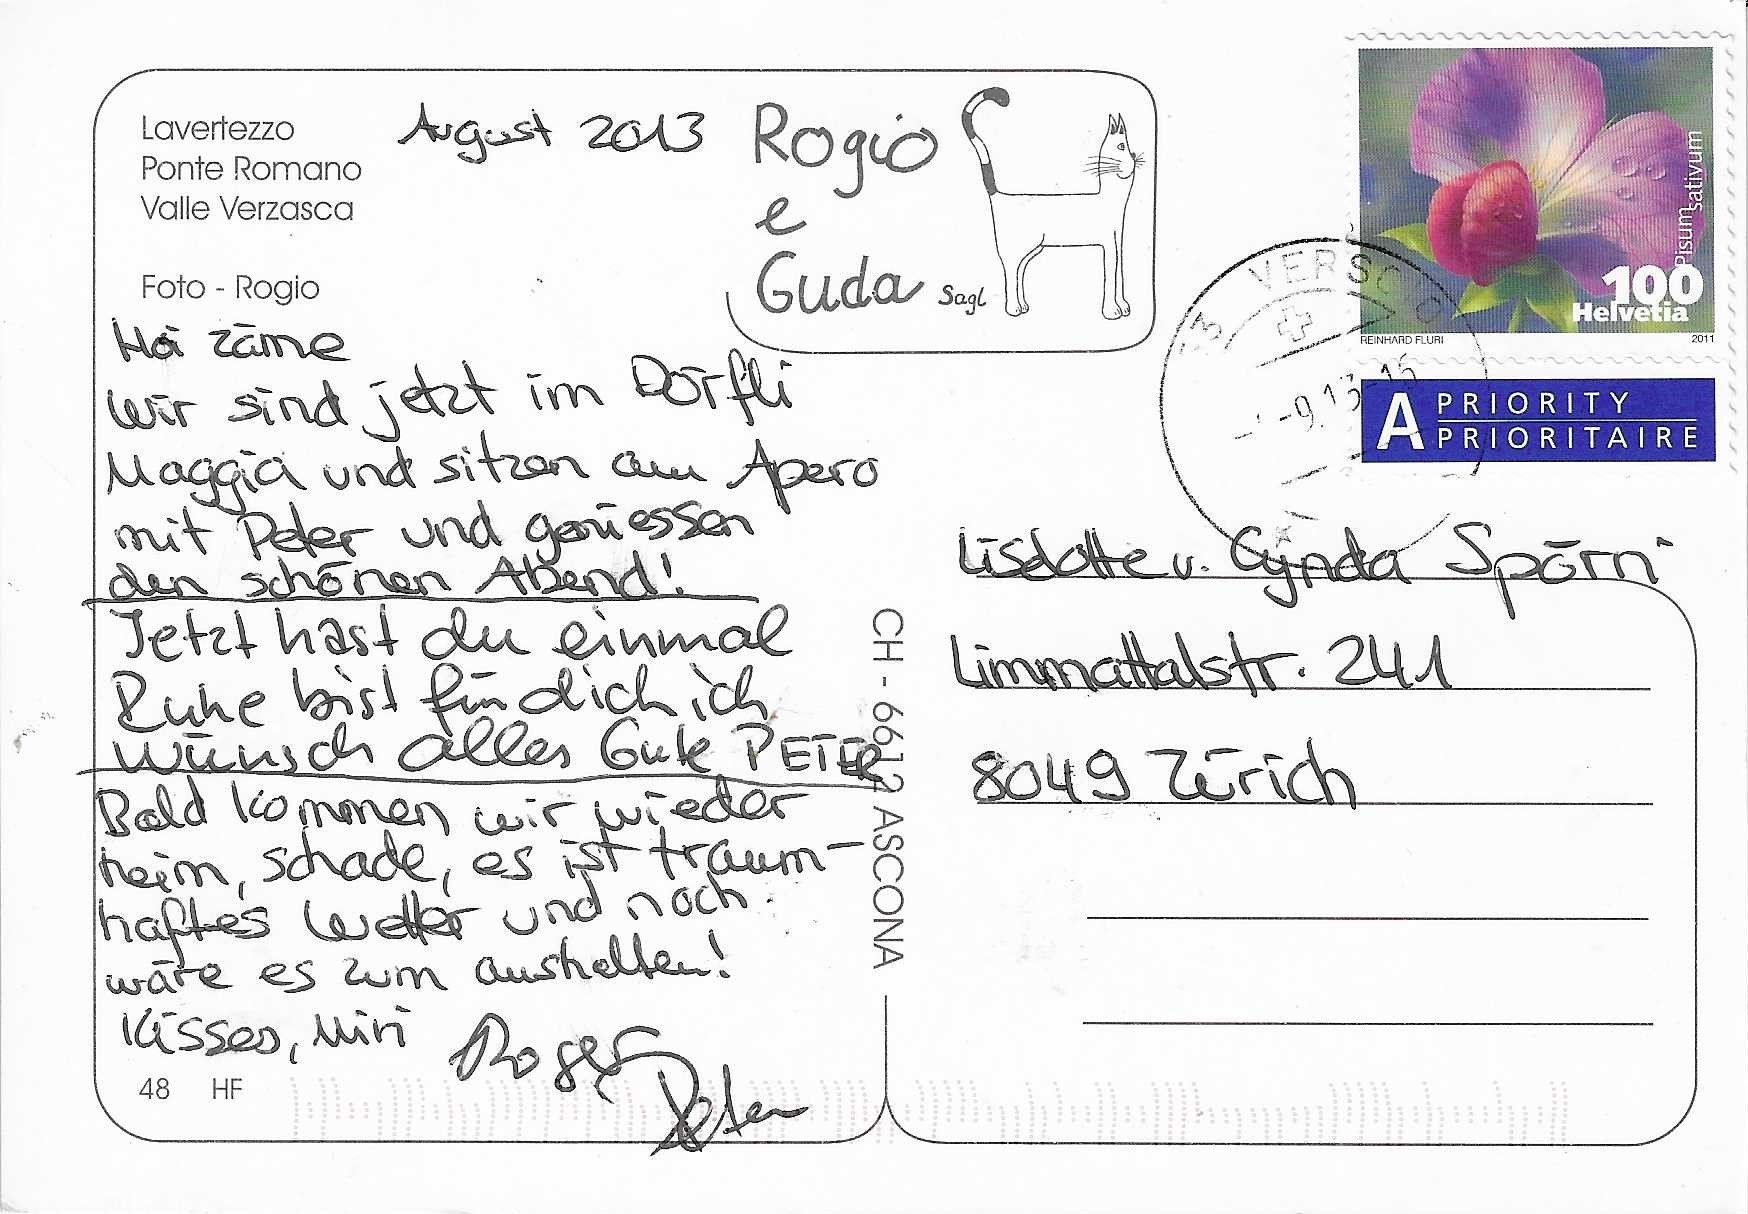 Lavertezzo
Ponte Romano
Valle Verzasca
Foto - Rogio
August 2013
Rogio
e
Guda Sagl
Hoi zäme
Wir sind jetzt im Dörfli
Maggia und sitzen am Apero
mit Peter und geniessen
den schönen Abend!
Jetzt hast du einmal
Ruhe bist für dich ich
wünsch alles Gute PETER
Bald kommen wir wieder
heim, schade, es ist traum-
haftes Wetter und noch
wäre es zum aushalten!
Kisses, Miri
Roger
Peter
48 HF
CH - 6612 ASCONA
VERSCIO
-9.13-15
Pisum sativum
100
Helvetia
REINHARD FLURI 2011
A PRIORITY
PRIORITAIRE
Lisdotte u. Cynda Spörri
Limmattalstr. 241
8049 Zürich